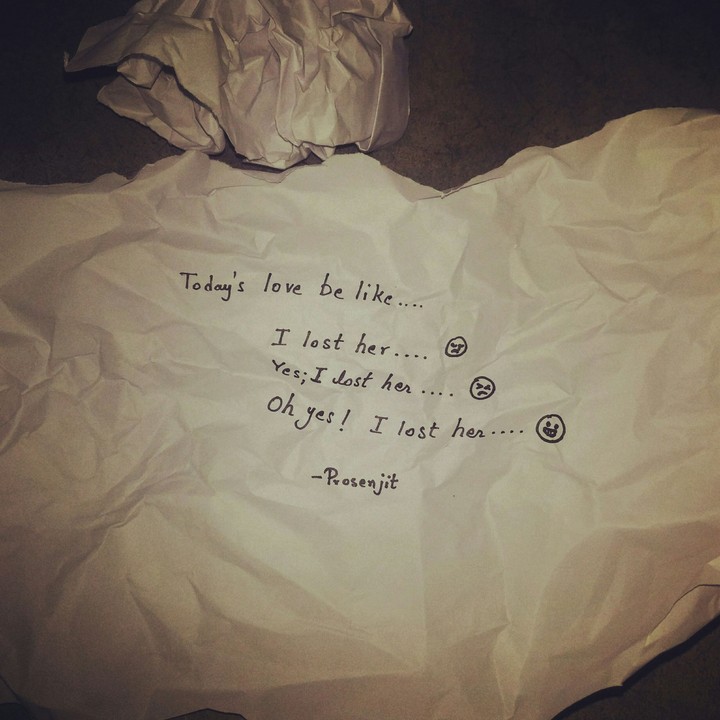 Today's love be like....
I lost her....
Yes; I lost her....
Oh yes! I lost her....
-Prosenjit